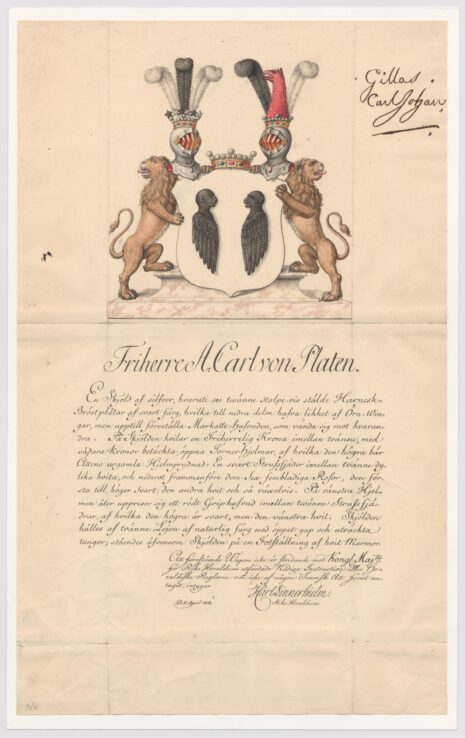 Gillas
Carl Johan
Friherre A. Carl von Platen.
En Skjöld af silfver, hvaruti ses tvänne stolpe-vis stälde Harnesk-
Bröst plåtar af svart färg, hvilka till nedra delen hafva likhet af Örn-Win-
gar, men upptill föreställa Markatte-Hufvuden, som vända sig mot hvaran-
dra. På Skjölden hvilar en Friherrelig Krona imellan tvänne, med
sådane Kronor betäckta, öppna Torner Hjelmar, af hvilka den högra bär
Ättens urgamla Hjelmprydnad: En svart Strussfjäder imellan tvänne dy-
lika hvita, och nederst framman före dem Sex fembladiga Rosor, den för-
sta till höger svart, den andra hvit och så växelvis. På vänstra Hjelm
men åter uppreser sig ett rödt Griphufvud imellan tvänne Struss fjä-
drar, af hvilka den högra är svart, men den vänstra hvit. Skjölden
hålles af tvänne Lejon af naturlig färg med öppet gap och utsträckta
tungor; ståendes äfvensom Skjölden på en Fotställning af hvit Marmor.
Att förestående Wapen icke är stridande mot Kongl. Maj:ts
för Riks Heraldicus utfärdade Nådiga Instruction, eller He-
raldiske Reglorna och icke af någon Svensk Ätt förut an-
taget, intygar
D. 8. April
Riks Heraldicus